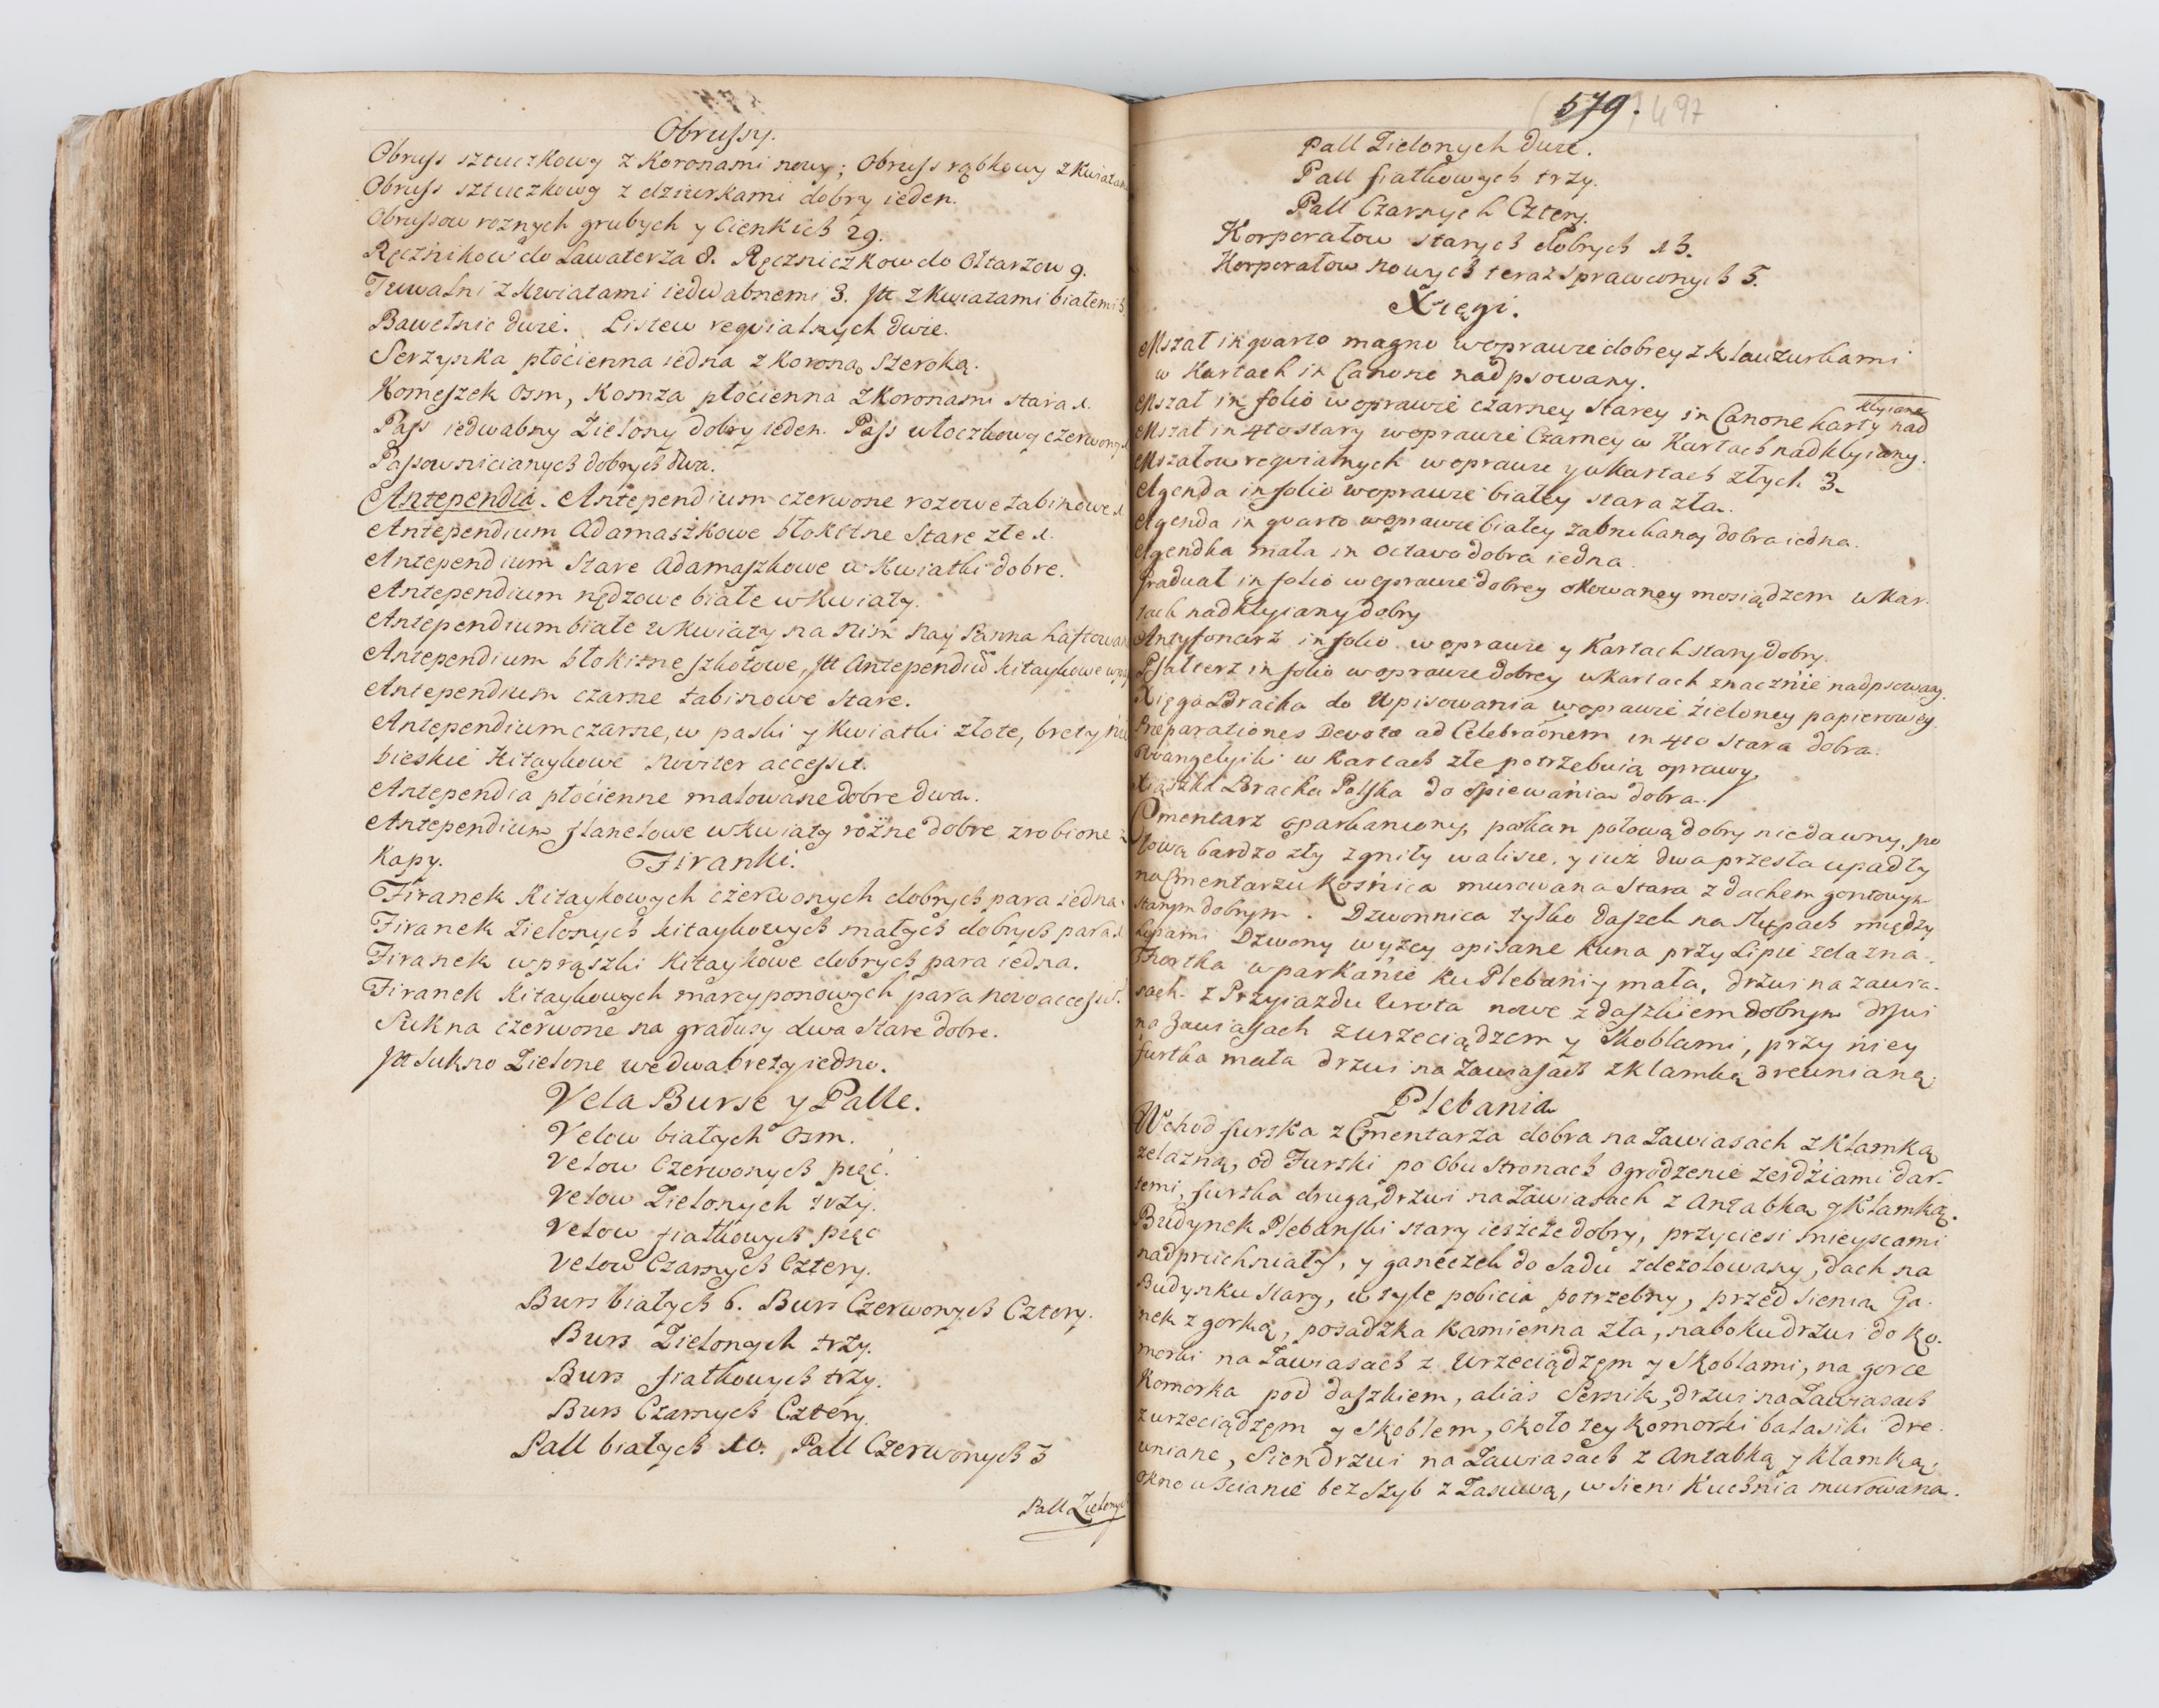 Obrussy.
Obruss sztuczkowy z Koronami nowy; Obruss rąbkowy z Kwiatam
Obruss sztuczkowy z dziurkami dobry ieden.
Obrussow roznych grubych y Cienkich 29.
Ręcznikow do Lawaterza 8. Ręczniczkow do Ołtarzow 9.
Tuwalni z Kwiatami iedwabnemi 3. It z Kwiatami białemi 3.
Bawełnic dwie. Listew reqvialnych dwie.
Serzynka płócienna iedna z Koroną szeroką.
Komeszek Osm, Komza płócienna z Koronami stara 1.
Pass iedwabny Zielony dobry ieden. Pass włoczkowy czerwony 1
Passow nicianych dobrych dwa.
Antependia. Antependium czerwone rozowe tabinowe 1.
Antependium Adamaszkowe błokitne Stare złe 1.
Antependium Stare Adamaszkowe w Kwiatki dobre.
Antependium nędzowe białe w kwiaty.
Antependium białe w kwiaty na nim Nay Panna haftowan
Antependium błokitne szkotowe, It Antependiū kitaykowe
Antependium czarne tabinowe stare.
Antependium czarne, w paski y Kwiatki złote, brety nie
bieskie Kitaykowe Noviter accessit.
Antependia płócienne malowane dobre dwa.
Antependium flanelowe w kwiaty rożne dobre zrobione z
Kapy. Firanki.
Firanek Kitaykowych czerwonych dobrych para iedna.
Firanek Zielonych kitaykowych małych dobrych para 1.
Firanek w prąszki Kitaykowe dobrych para iedna.
Firanek Kitaykowych marcyponowych para novo accessit.
Sukna czerwone na gradusy dwa Stare dobre.
It Sukno Zielone we dwa brety iedno.
Vela Burse y Palle.
Velow białych Osm.
Velow Czerwonych pięć.
Velow Zielonych trzy.
Velow fiałkowych pięc
Velow Czarnych Cztery.
Burs białych 6. Burs Czerwonych Cztery.
Burs Zielonych trzy.
Burs fiałkowych trzy.
Burs Czarnych Cztery.
Pall białych 10. Pall Czerwonych 3
Pall Zielonych
579. 497
Pall Zielonych dwie.
Pall fiałkowych trzy.
Pall Czarnych Cztery.
Korporałow starych dobrych 13.
Korporałow nowych teraz sprawionych 5.
Xięgi.
Mszał in qvarto magno w oprawie dobrey z klauzurkami
w Kartach in Canone nadpsowany.
Mszał in folio w oprawie czarney starey in Canone karty nad
klyiane
Mszał in 4to stary w oprawie Czarney w Kartach nadklyiony.
Mszałow reqvialnych w oprawie y w kartach złych 3.
Agenda in folio w oprawie białey stara zła.
Agenda in qvarto w oprawie białey zabrukaney dobra iedna.
Agendka mała in Octavo dobra iedna.
Graduał in folio w oprawie dobrey okowaney mosiądzem w kar-
tach nadklyiany dobry
Antyfonarz in folio w oprawie y Kartach stary dobry.
Psałterz in folio w oprawie dobrey w kartach znacznie nadpsowany.
Xięga Bracka do Wpisowania w oprawie zieloney papierowey.
Præparationes Devotæ ad Celebraōnem in 4to stara dobra.
Ewangelyiki w Kartach złe potrzebuią oprawy.
Xiąszka Bracka Polska do śpiewania dobra.
Cmentarz oparkaniony, parkan połową dobry niedawny, po
łową bardzo zły zgniły walisie, y iuż dwa przesła upadły
na Cmentarzu Kośnica murowana stara z dachem gontowym
starym dobrym. Dzwonnica tylko daszek na słupach między
Lipami Dzwony wyżey opisane kuna przy Lipie zelazna.
Fortka w parkanie ku Plebanij mała, drzwi na zawia-
sach. z Przyiazdu Wrota nowe z daszkiem dobrym drzwi
na Zawiasach z wrzeciądzem y Skoblami, przy niey
furtka mała drzwi na zawiasach z klamką drewnianą.
Plebania
Wchod furtka z Cmentarza dobra na Zawiasach z Klamką
zelazną, od Furtki po Obu stronach Ogrodzenie zerdziami dar-
temi, furtka druga, drzwi na Zawiasach z Antabką y Klamką.
Budynek Plebański stary ieszcze dobry, przyciesi mieyscami
nadpruchniały, y ganeczek do Sadu zdezolowany, dach na
Budynku stary, w tyle pobicia potrzebny, przed Sienią Ga-
nek z gorką, posadzka Kamienna zła, na boku drzwi do Ko-
morki na Zawiasach z Wrzeciądzem y Skoblami, na gorce
Komorka pod daszkiem, alias Sernik, drzwi na Zawiasach
z wrzeciądzem y Skoblem, około tey Komorki balasiki dre-
wniane, Sien drzwi na Zawiasach z Antabką y klamką,
Okno w Scianie bez Szyb z Zasuwą, w Sieni Kuchnia murowana.